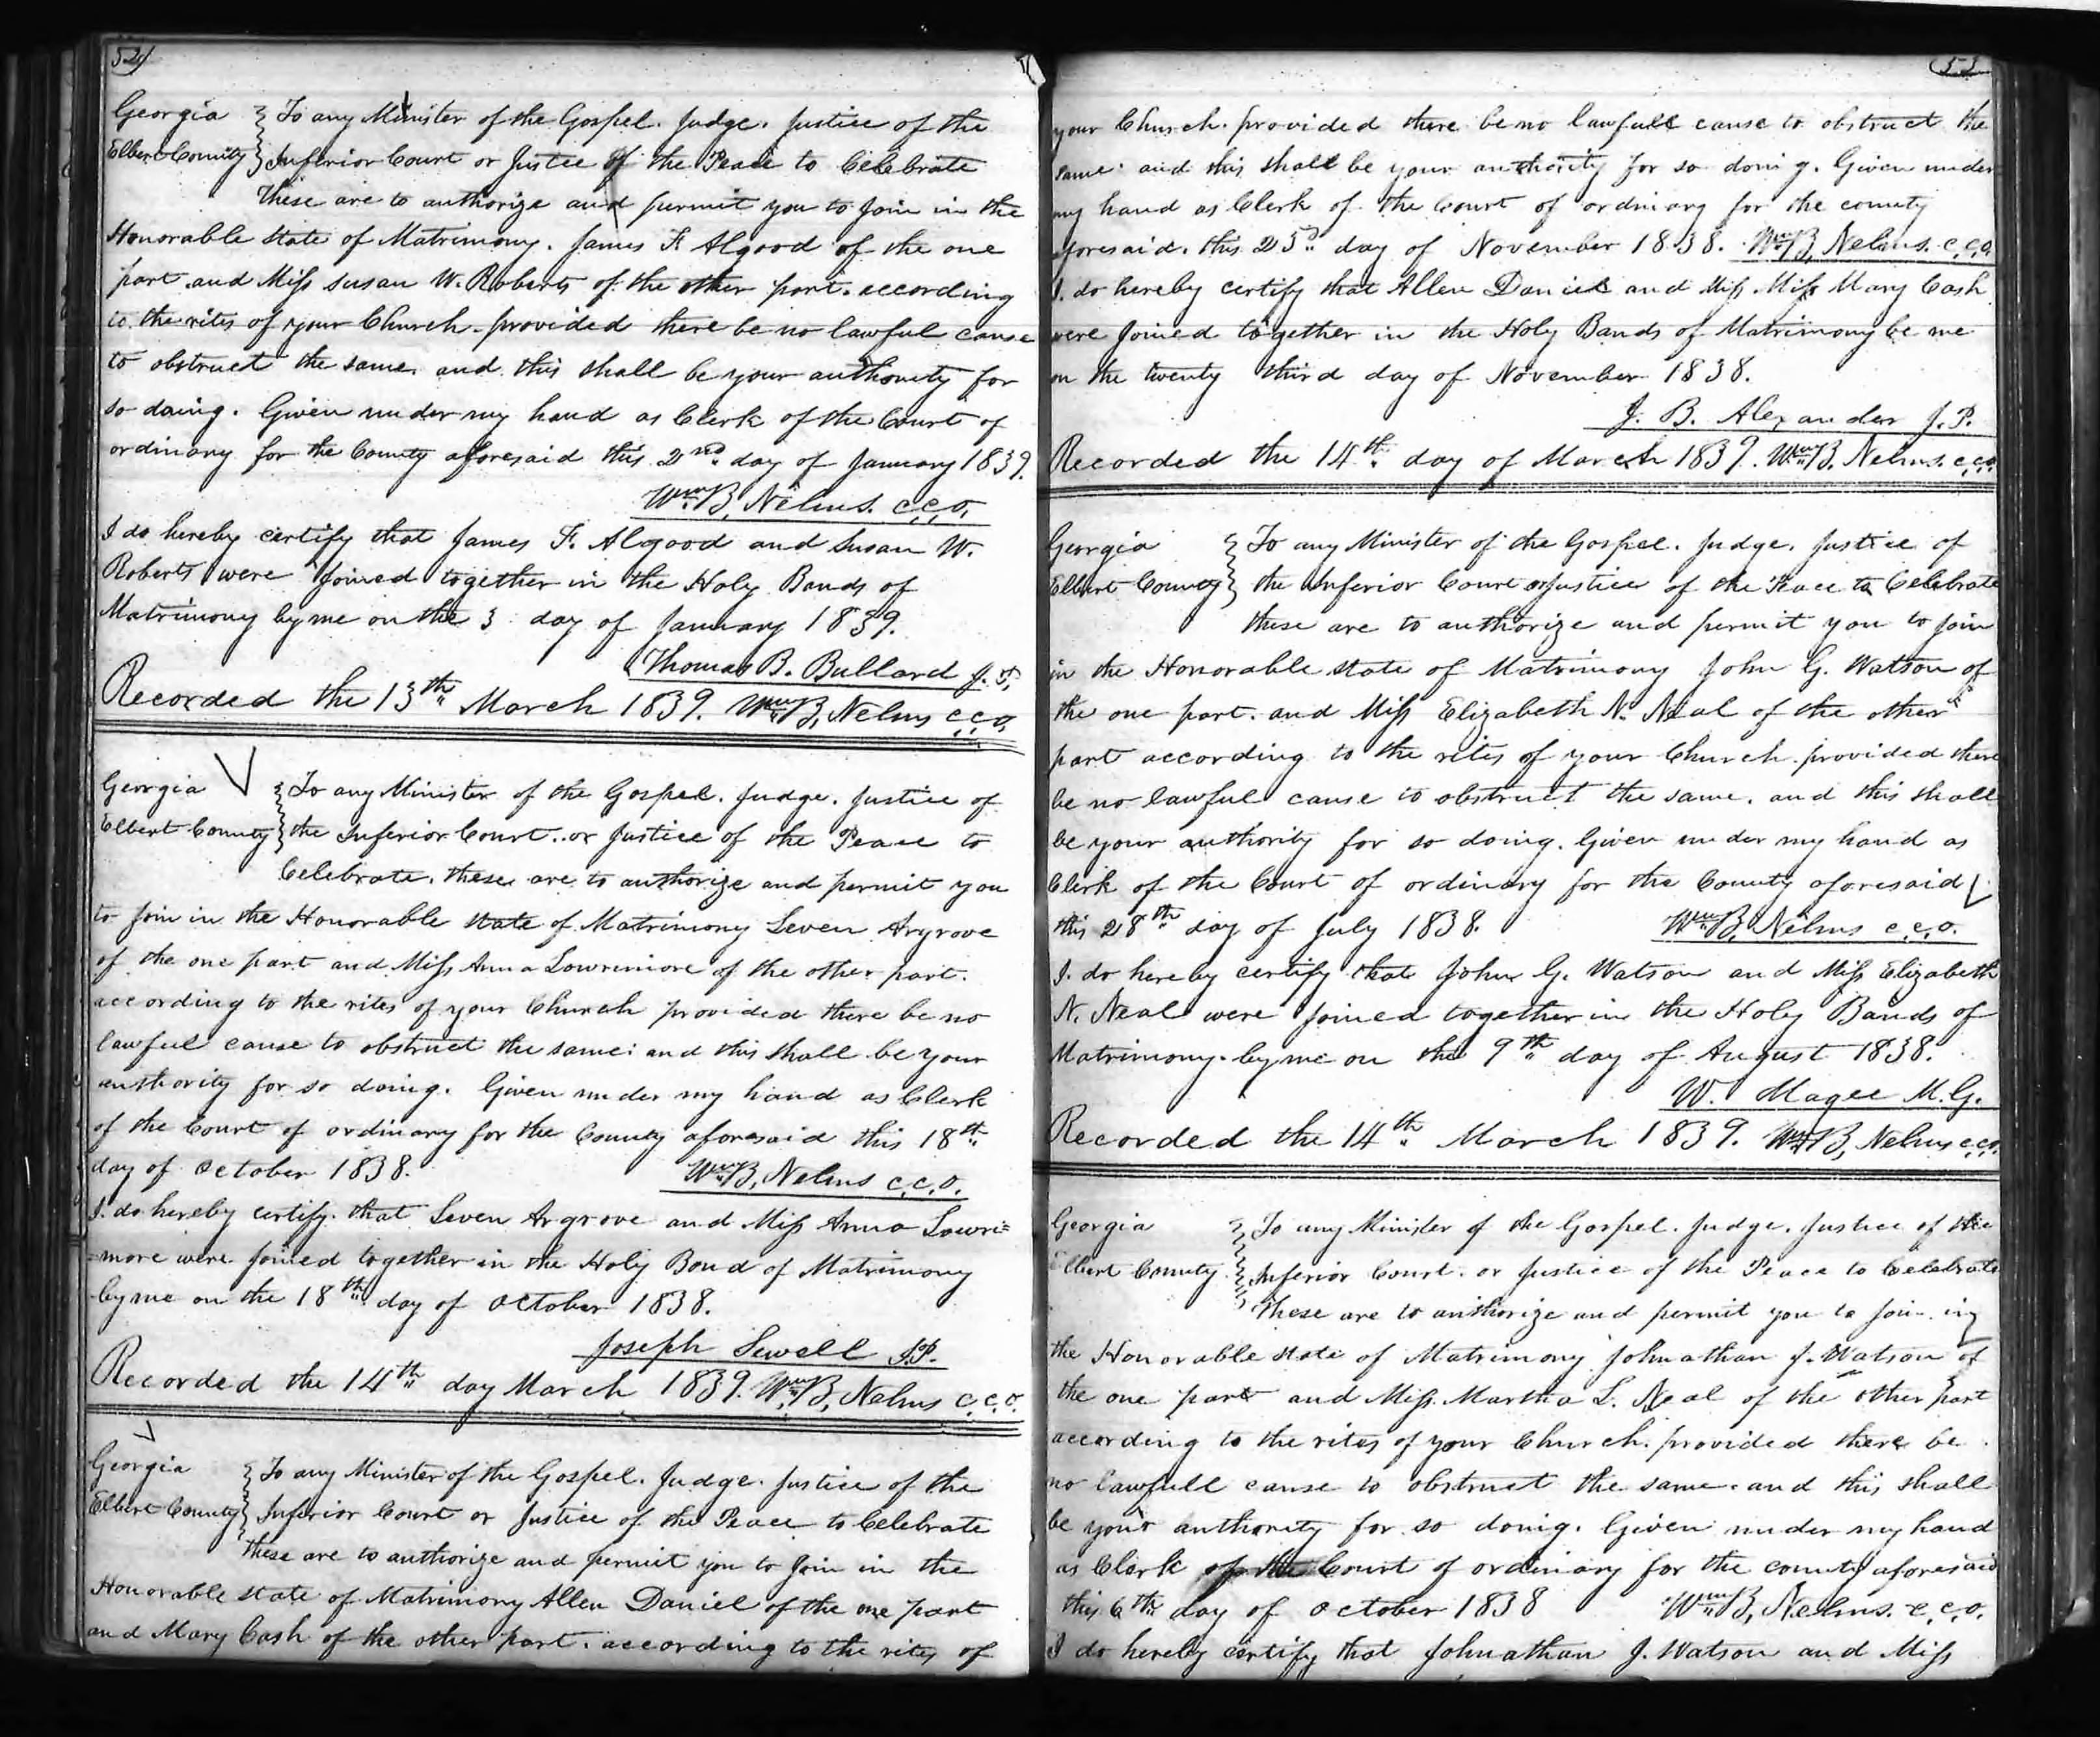 52
Georgia } To any Minister of the Gospel. Judge. Justice of the
Elbert County } Inferior Court or Justce of the Peace to Celebrate
These are to authorize and permit you to join in the
Honorable state of Matrimony. James F. Algood of the one
part and Miss Susan W. Roberts of the other part. according
to the rites of your Church. provided there be no lawful cause
to obstruct the same. and this shall be your authority for
so doing. Given under my hand as Clerk of the Court of
ordinary for the County aforesaid this 2nd day of January 1839.
Wm B, Nelms. c.c.o.
I do hereby certify that James F. Algood and Susan W.
Roberts were joined together in the Holy Bands of
Matrimony by me on the 3 day of January 1839.
Thomas B. Bullard J.P.
Recorded the 13th March 1839. Wm B, Nelms c.c.o.
Georgia } To any Minister of the Gospel. Judge. Justice of
Elbert County } the Inferior Court. or Justice of the Peace to
Celebrate. these are to authorize and permit you
to join in the Honorable state of Matrimony Seven Argrove
of the one part and Miss Anna Lowremore of the other part.
according to the rites of your Church provided there be no
lawful cause to obstruct the same: and this shall be your
authority for so doing. Given under my hand as Clerk
of the Court of ordinary for the County aforesaid this 18th
day of October 1838. Wm B, Nelms c.c.o.
I. do hereby certify. that Seven Argrove and Miss Anna Lowre=
=more were joined together in the Holy Bond of Matrimony
by me on the 18th day of October 1838.
Joseph Sewell J.P.
Recorded the 14th day March 1839. Wm B, Nelms c.c.o.
Georgia } To any Minister of the Gospel. Judge. Justice of the
Elbert County } Inferior Court or Justice of the Peace to Celebrate
these are to authorize and permit you to join in the
Honorable state of Matrimony Allen Daniel of the one part
and Mary Cash of the other part. according to the rites of
53
your Church. provided there be no lawfull cause to obstruct the
same. and this shall be your authority for so doing. Given under
my hand as Clerk of the Court of ordinary for the county
aforesaid. this 23rd day of November 1838. Wm B, Nelms. c.c.o.
I. do hereby certify that Allen Daniel and Miss. Miss Mary Cash
were joined together in the Holy Bands of Matrimony be me
on the twenty third day of November 1838.
J. B. Alexander J.P.
Recorded the 14th day of March 1839. Wm B. Nelms. c.c.o.
Georgia } To any Minister of the Gospel. Judge. Justice of
Elbert County } the Inferior Court or Justice of the Peace to Celebrate
these are to authorize and permit you to join
in the Honorable state of Matrimony John G. Watson of
the one part. and Miss Elizabeth N. Neal of the other
part according to the rites of your Church. provided there
be no lawful cause to obstruct the same. and this shall
be your authority for so doing. Given under my hand as
Clerk of the Court of ordinary for the County aforesaid
this 28th day of July 1838. Wm B, Nelms c.c.o.
I. do hereby certify that John G. Watson and Miss Elizabeth
N. Neal were joined together in the Holy Bands of
Matrimony. by me on the 9th day of August 1838.
W. Magee M.G.
Recorded the 14th March 1839. Wm B, Nelms c.c.o.
Georgia } To any Minister of the Gospel. Judge. Justice of the
Elbert County } Inferior Court. or Justice of the Peace to Celebrate
These are to authorize and permit you to join in
the Honorable state of Matrimony Johnathan J. Watson of
the one part and Miss. Martha L. Neal of the other part
according to the rites of your Church. provided there be
no lawfull cause to obstruct the same. and this shall
be your authority for so doing. Given under my hand
as Clerk of the Court of ordinary for the county aforesaid
this 6th day of October 1838 Wm B, Nelms. c.c.o.
I do hereby certify that Johnathan J. Watson and Miss